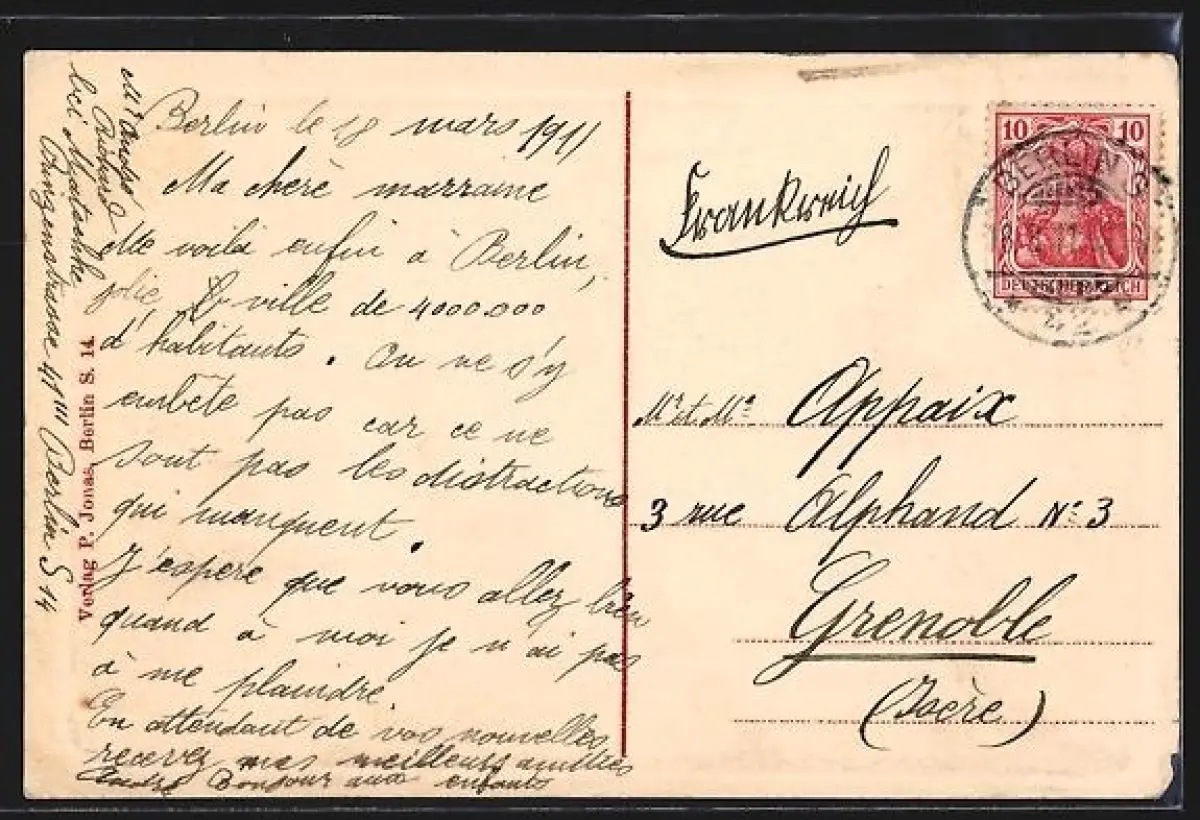 Berlin le 18 mars 1911
Ma chère marraine
Me voilà enfin à Berlin,
jolie ville de 4000.000
d'habitants. On ne s'y
embête pas car ce ne
sont pas les distractions
qui manquent.
J'espere que vous allez bien
quand à moi je n'ai pas
à me plaindre
En attendant de vos nouvelles
recevez mes meilleurs amitiés
André Bonjour aux enfants
Mr André
Richard
bei
41 III Berlin S 14
Verlag P. Jonas, Berlin S. 14.
Frankreich
10 10
DEUTSCHES REICH
BERLIN S
Mr et Me Appaix
3 rue Alphand No 3
Grenoble
(Isère)